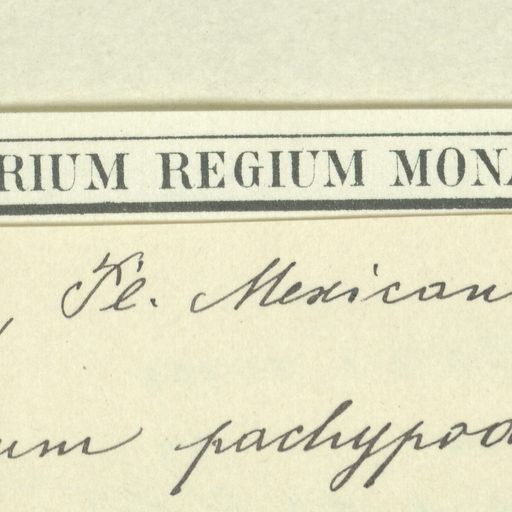 RIUM REGIUM MONA
Fl. Mexican
um pachypod